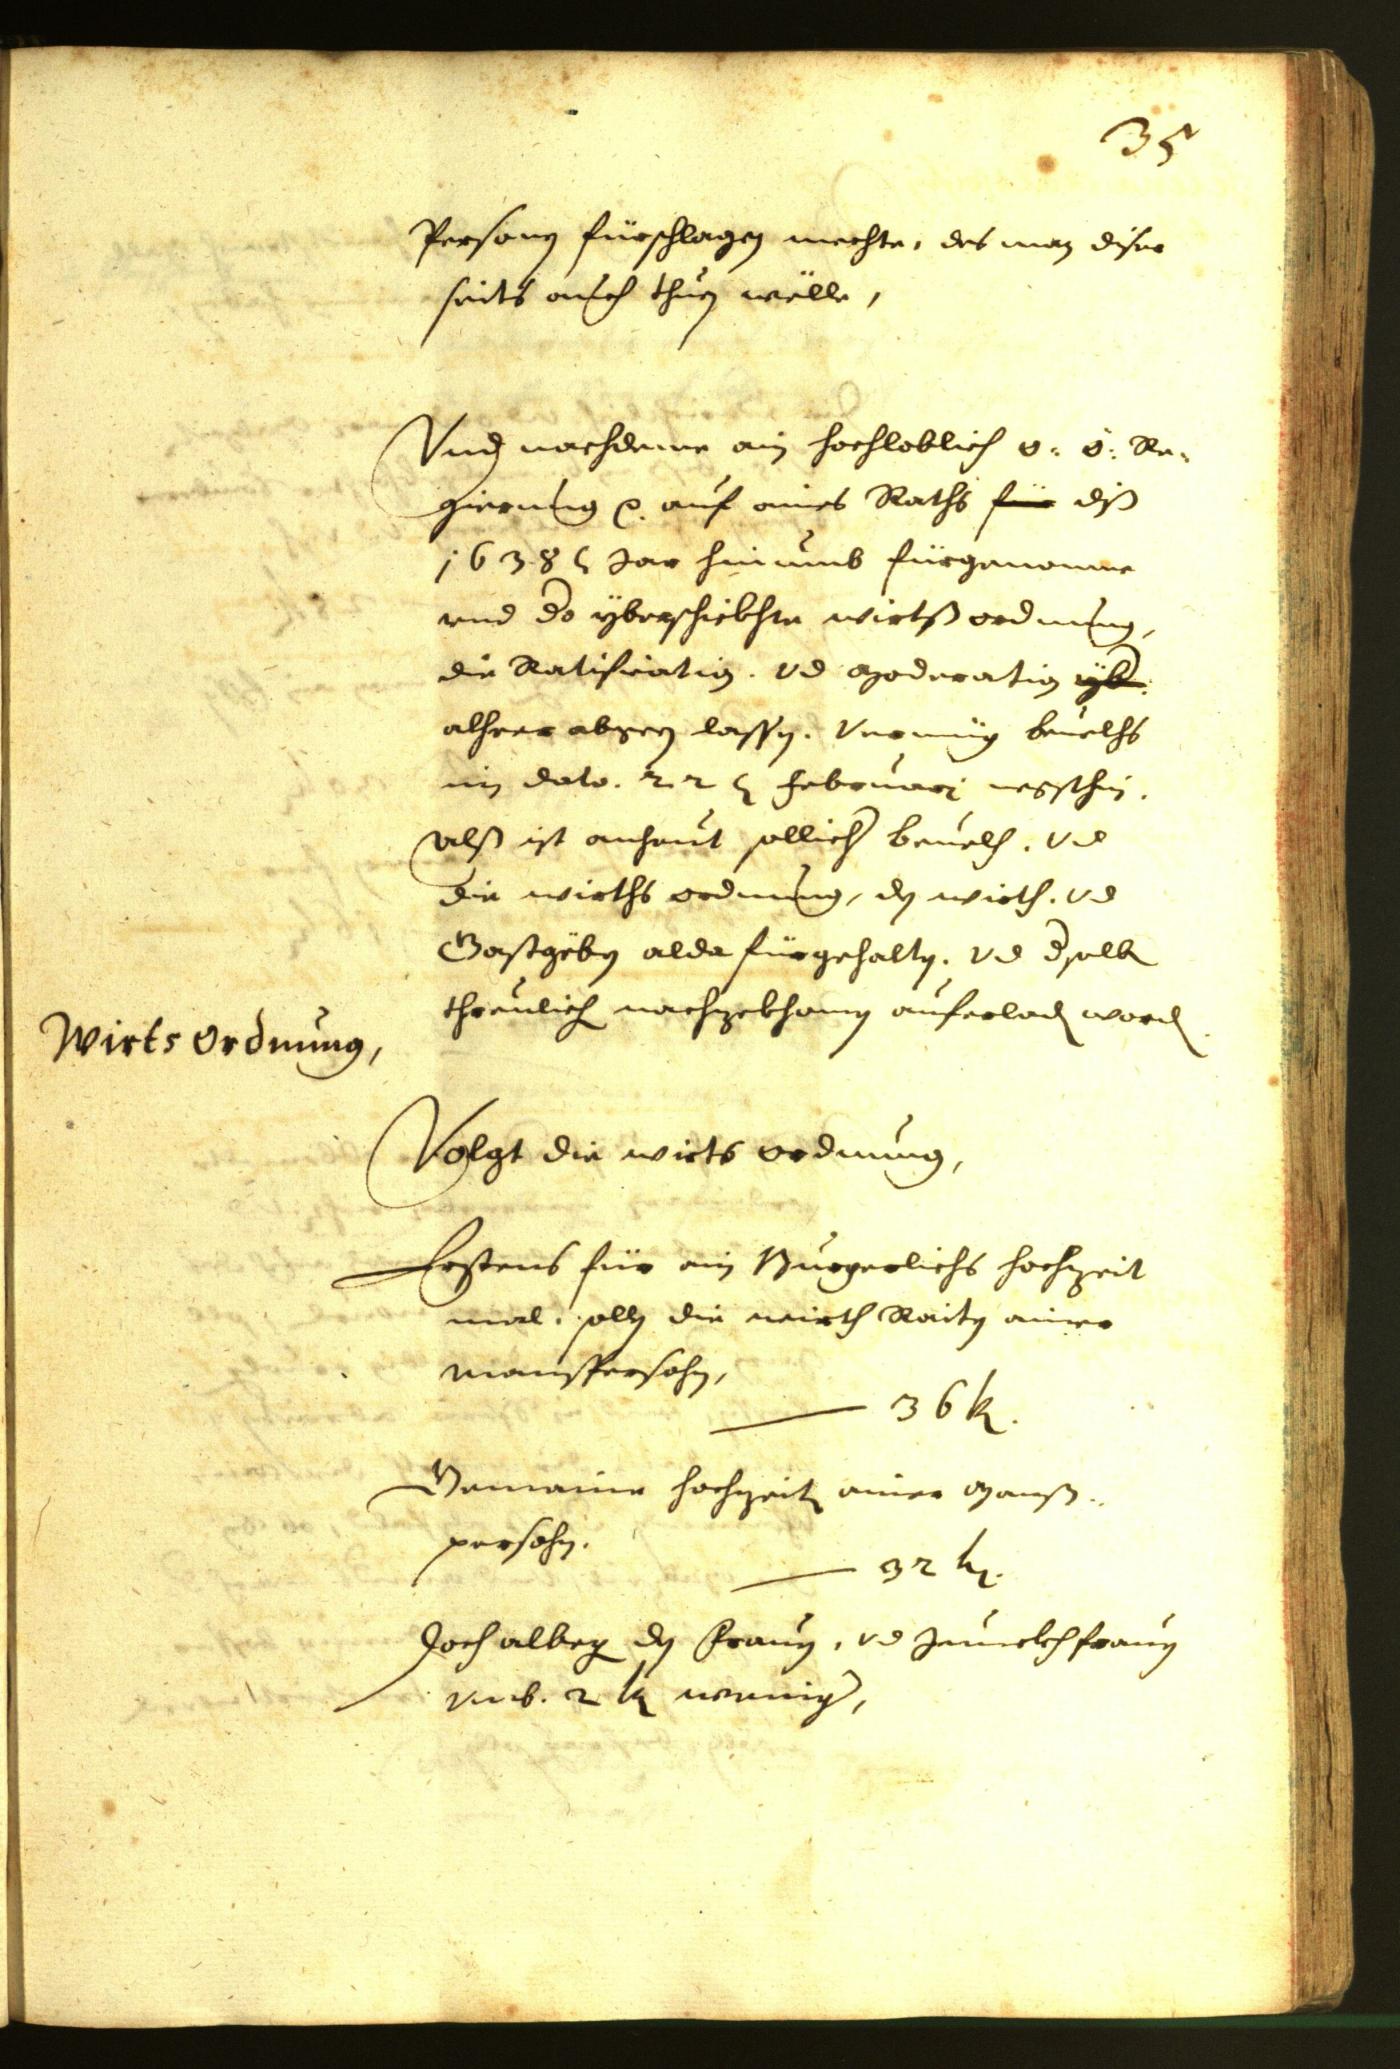 35
Persony fürschlagen mechte, des man diser
seits auch thuen wölle,
Vnd nachdeme ain hochloblich o: ö: Re-
gierung p. auf aines Raths für diß
1638 Jar hinumb fürgenomne
vnd do yberschickhte wirtß ordnung,
die Ratification. vd Moderation yb
alheer abgen lassen. Vermüg beuelchs
im dato. 22 Februarj
alß ist anheut sollicher beuelch. vd
die wirths ordnung, den wirth. vd
Gastgëben alda fürgehalten. vd dselben
threulich nachzekhomen auferladen worden.
Wirts Ordnung,
Volgt die wirts ordnung,
Erstens für ein Burgerlichs hochzeit
mal. sollen die wirth Raiten ainer
manspersohn,
— 36 k.
Gemaine hochzeit ainer Manß-
persohn.
— 32 k.
Doch alweg den Frauen, vd Junckhfrauen
vmb. 2 k weniger,